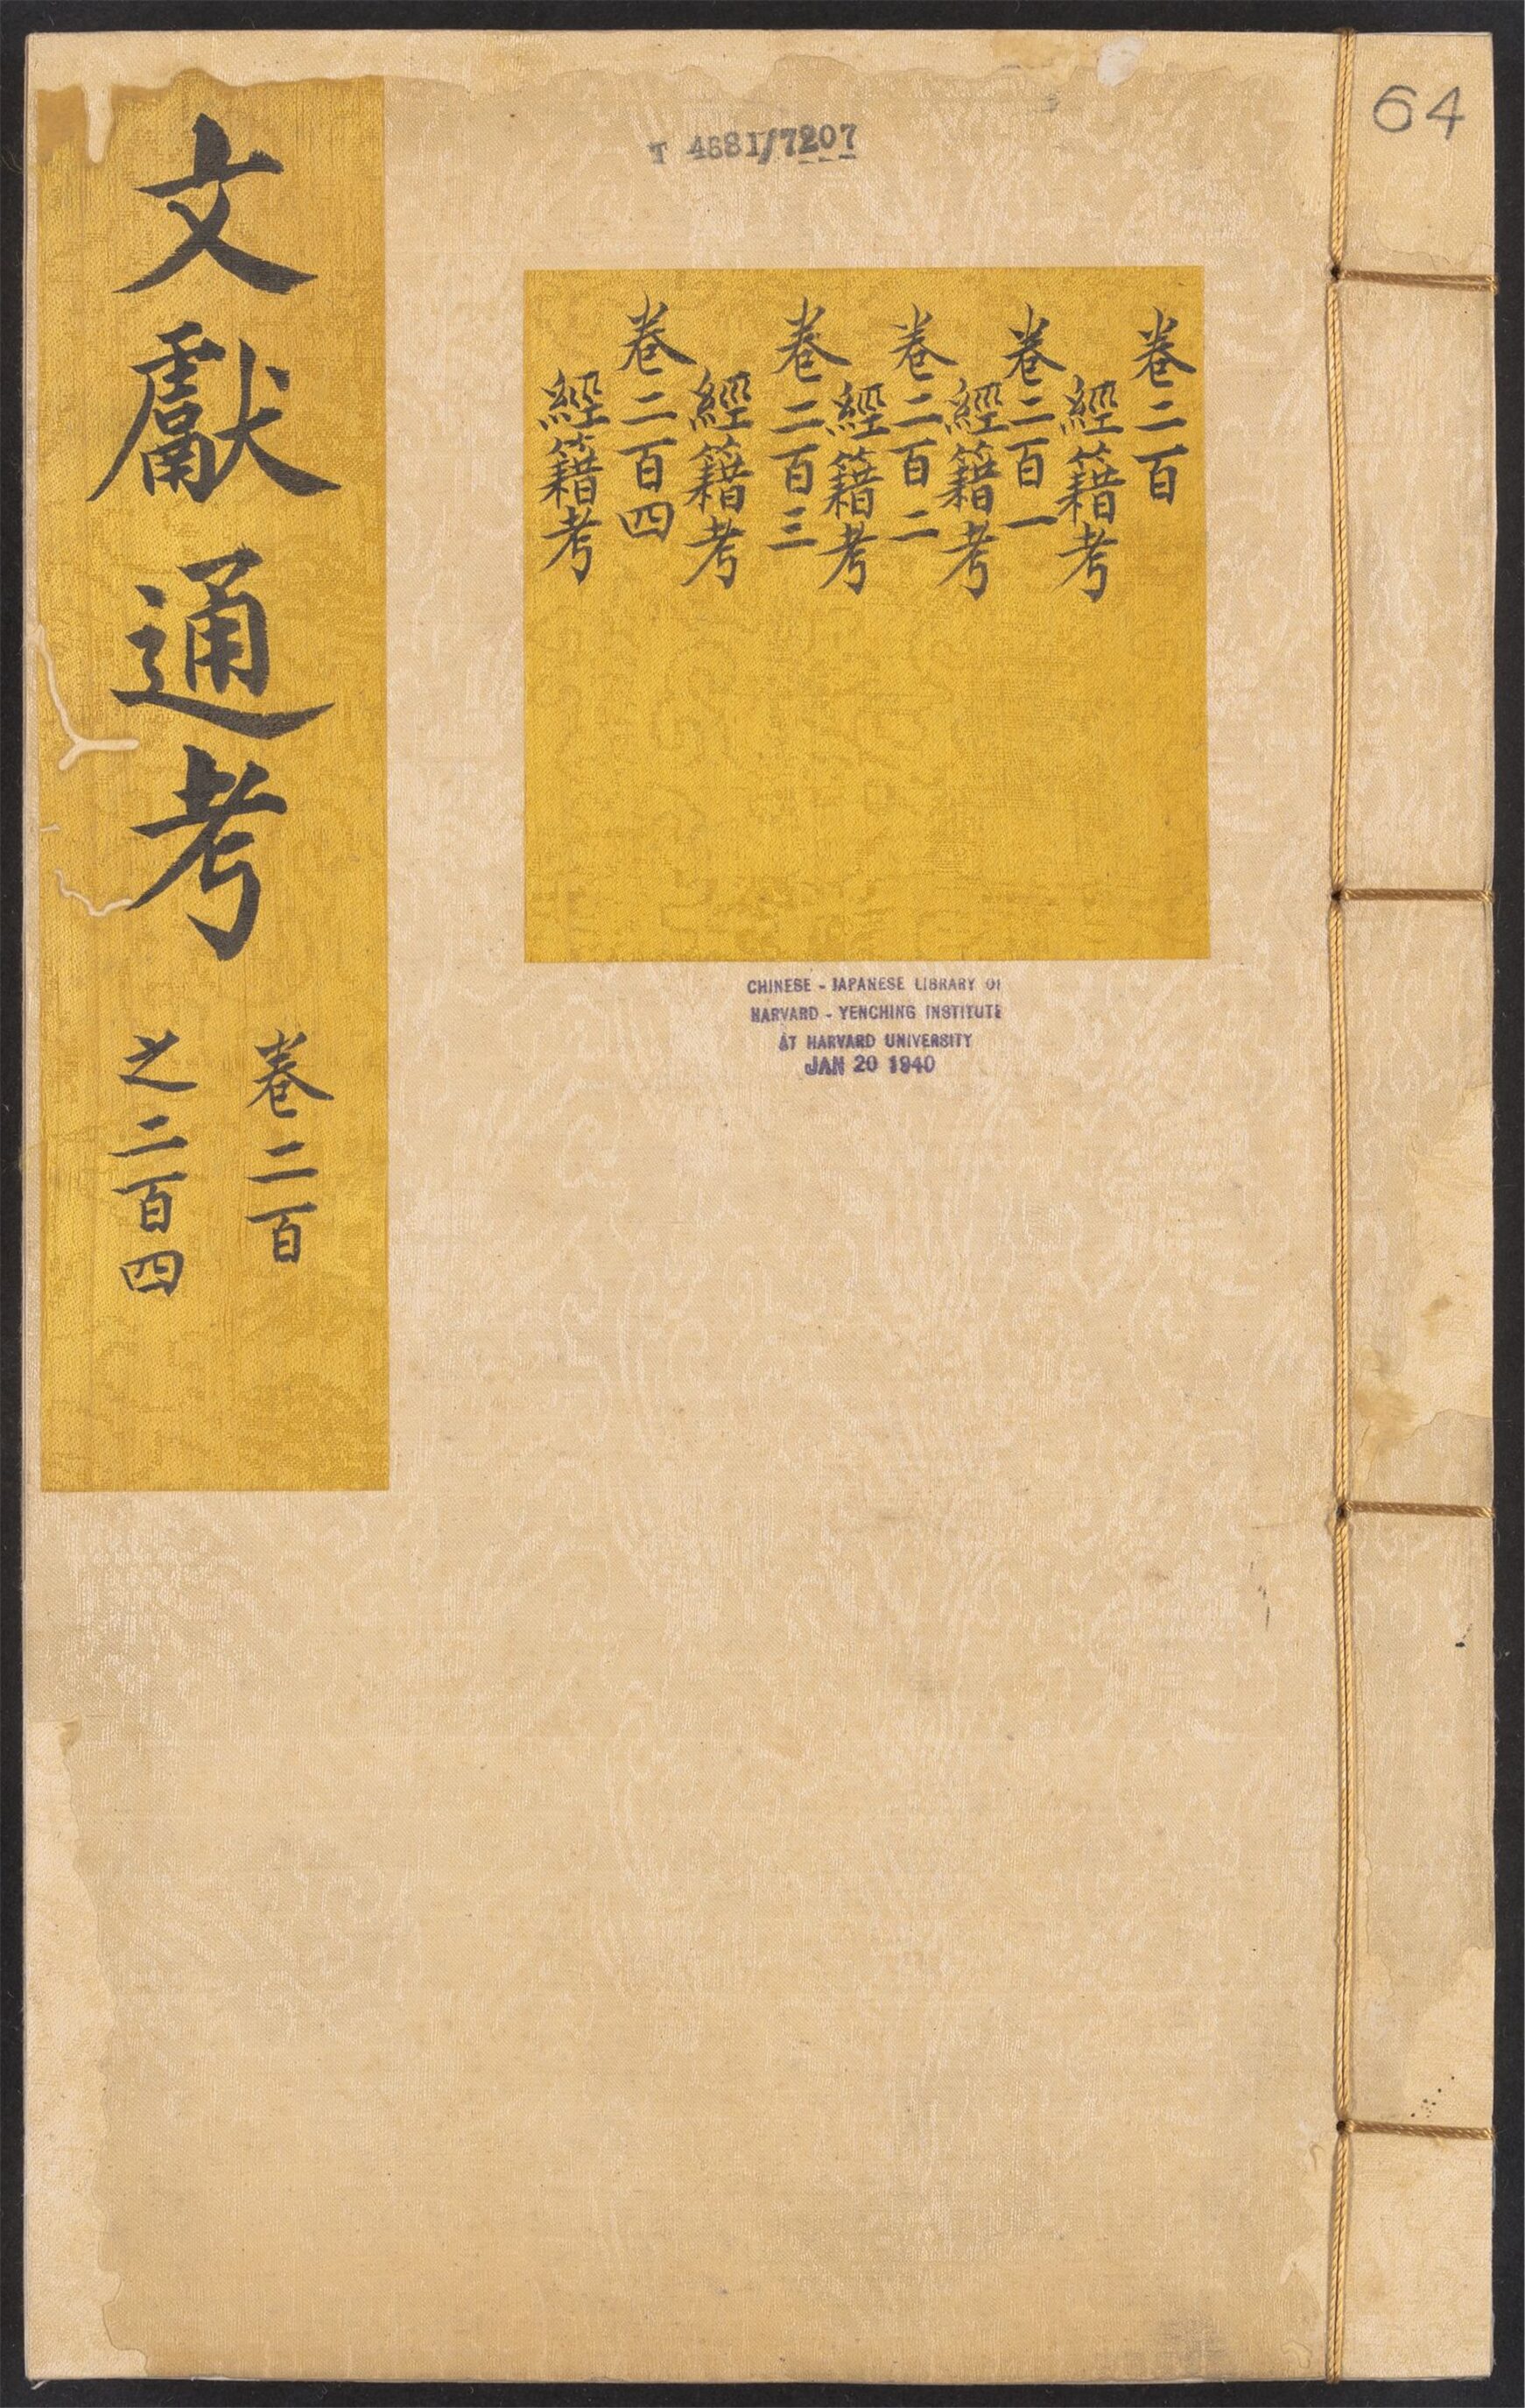 64
T 4681/7207
卷二百
經籍考
卷二百一
經籍考
卷二百二
經籍考
卷二百三
經籍考
卷二百四
經籍考
CHINESE - JAPANESE LIBRARY OF
HARVARD - YENCHING INSTITUTE
AT HARVARD UNIVERSITY
JAN 20 1940
文獻通考
卷二百
之二百四